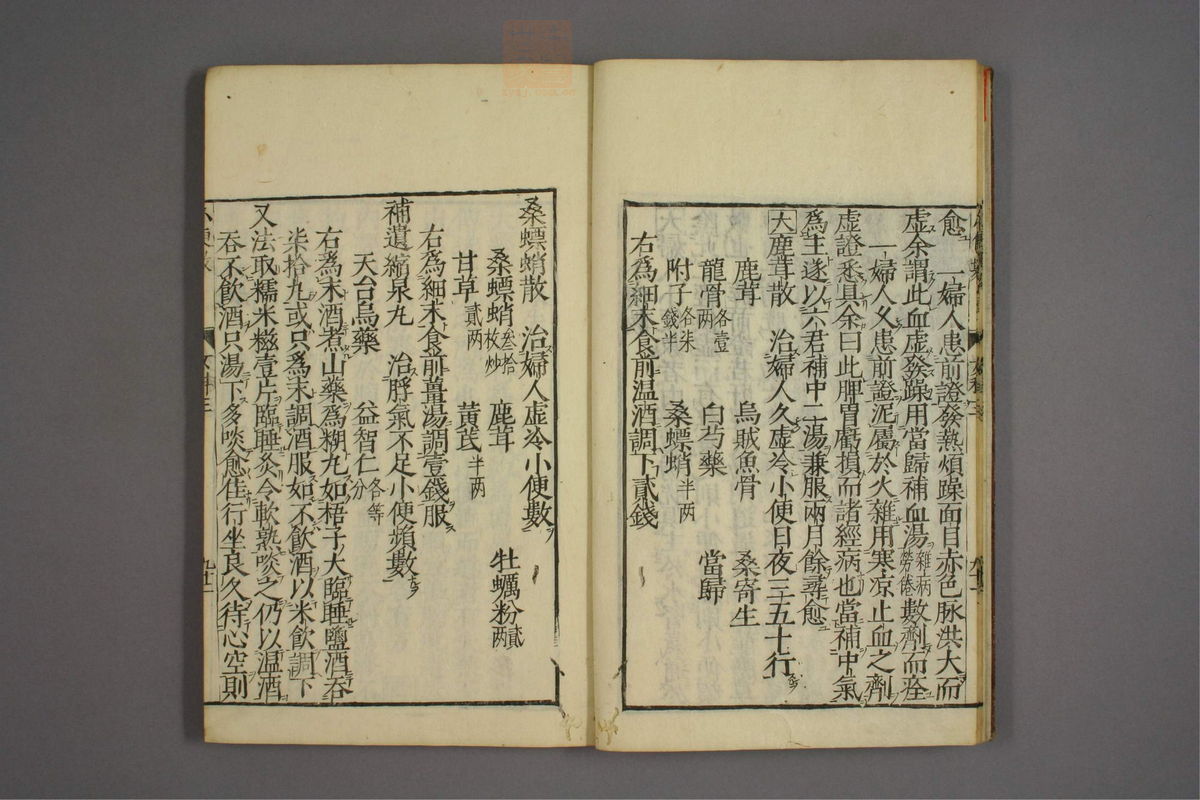 愈 一婦人患前證發熱煩躁面目赤色脉洪大而
虛余謂此血虛發躁用當歸補血湯雜病勞倦數劑而痊
一婦人久患前證泥屬於火雜用寒凉止血之劑
虛證悉具余曰此脾胃虧損而諸經病也當補中氣
爲主遂以六君補中二湯兼服兩月餘尋愈
大鹿茸散 治婦人久虛冷小便日夜三五十行
鹿茸 烏賊魚骨 桑寄生
龍骨各壹兩 白芍藥 當歸
附子各柒錢半 桑螵蛸半兩
右爲細末食前温酒調下貳錢
桑螵蛸散 治婦人虛冷小便數
桑螵蛸叁拾枚炒 鹿茸 牡蠣粉貳兩
甘草貳兩 黄芪半兩
右爲細末食前薑湯調壹錢服
補遺縮泉丸 治脬氣不足小便頻數
天台烏藥 益智仁各等分
右爲末酒煮山藥爲糊丸如梧子大臨睡鹽酒吞
柒拾丸或只爲末調酒服如不飲酒以米飲調下
又法取糯米糍壹片臨睡炙令軟熟啖之仍以温酒
吞不飲酒只湯下多啖愈佳行坐良久待心空則